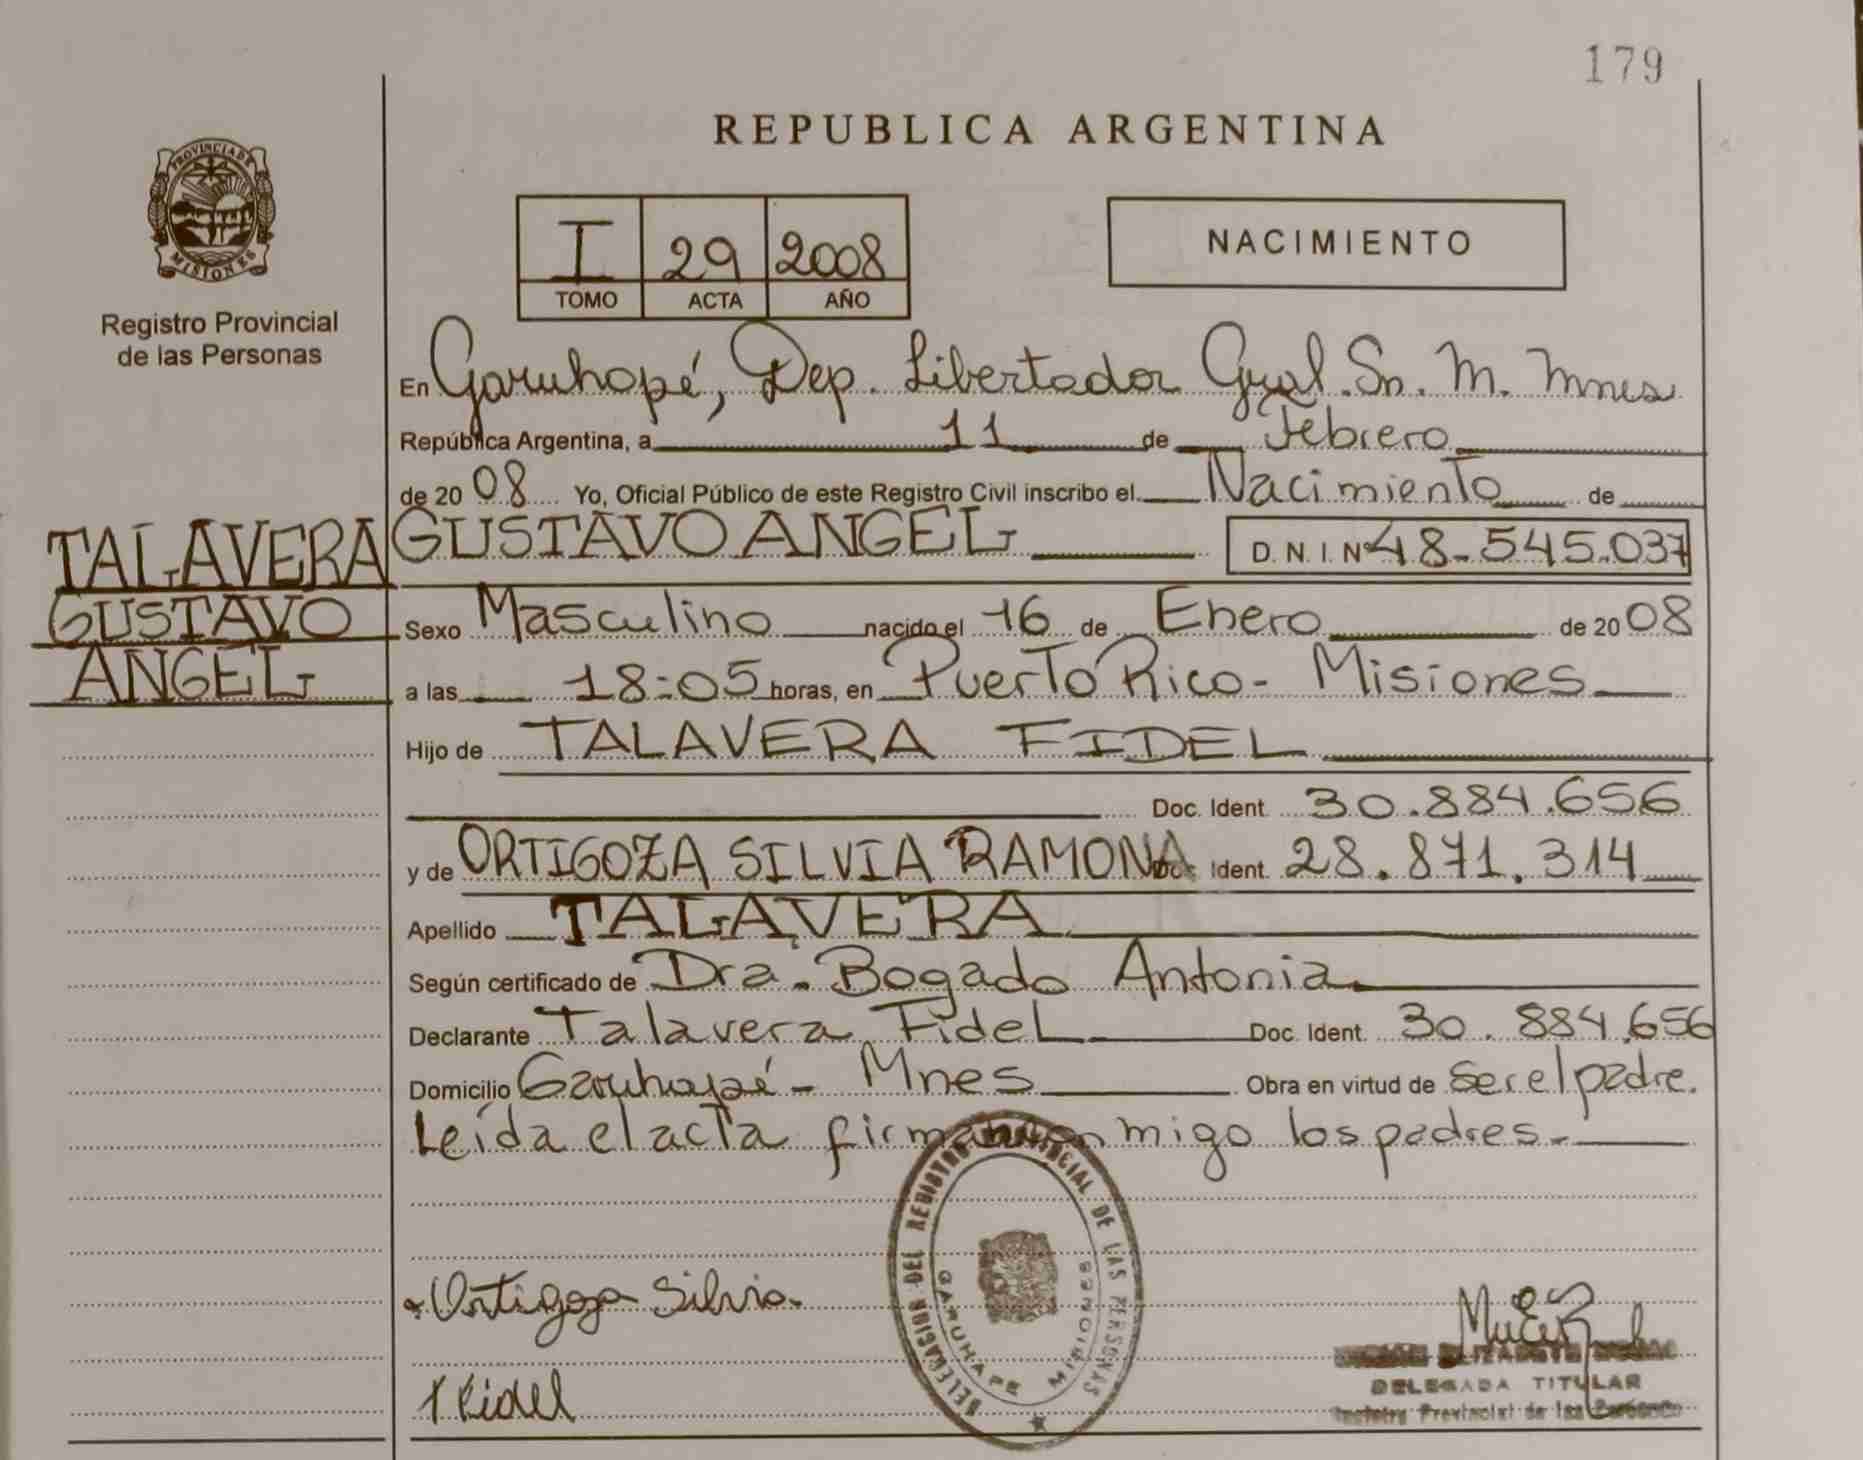 179
REPUBLICA ARGENTINA
PROVINCIA DE
MISIONES
Registro Provincial
de las Personas
I 29 2008
TOMO ACTA AÑO
NACIMIENTO
En Garuhapé, Dep. Libertador Gral. Sn. M. Mnes
República Argentina, a 11 de Febrero
de 2008 Yo, Oficial Público de este Registro Civil inscribo el Nacimiento de
TALAVERA GUSTAVO ANGEL D.N.I. Nº 48-545.037
GUSTAVO
ANGEL
Sexo Masculino nacido el 16 de Enero de 2008
a las 18:05 horas, en Puerto Rico - Misiones
Hijo de TALAVERA FIDEL
Doc. Ident. 30.884.656
y de ORTIGOZA SILVIA RAMONA Doc. Ident. 28.871.314
Apellido TALAVERA
Según certificado de Dra. Bogado Antonia
Declarante Talavera Fidel Doc. Ident. 30.884.656
Domicilio Garuhapé - Mnes Obra en virtud de ser el padre.
Leída el acta firman conmigo los padres.
DELEGACION DEL REGISTRO PROVINCIAL DE LAS PERSONAS
GARUHAPE MISIONES
Ortigoza Silvia
T Fidel
ELIZABETH
DELEGADA TITULAR
Registro Provincial de las Personas